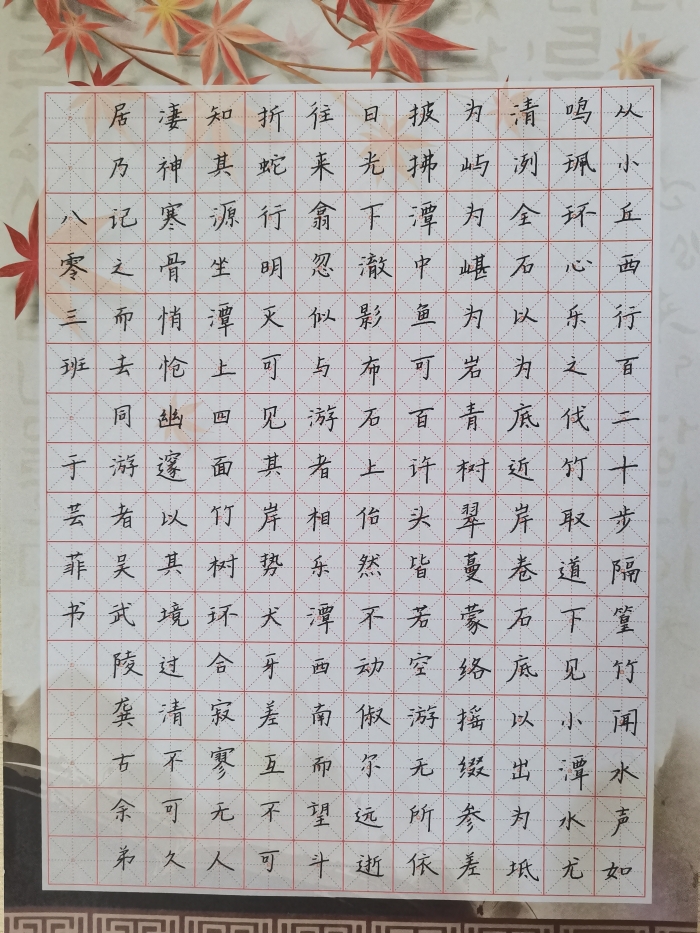 从小丘西行百二十步隔篁竹闻水声如
鸣珮环心乐之伐竹取道下见小潭水尤
清冽全石以为底近岸卷石底以出为坻
为屿为嵁为岩青树翠蔓蒙络摇缀参差
披拂潭中鱼可百许头皆若空游无所依
日光下澈影布石上佁然不动俶尔远逝
往来翕忽似与游者相乐潭西南而望斗
折蛇行明灭可见其岸势犬牙差互不可
知其源坐潭上四面竹树环合寂寥无人
凄神寒骨悄怆幽邃以其境过清不可久
居乃记之而去同游者吴武陵龚古余弟
八零三班 于芸菲书